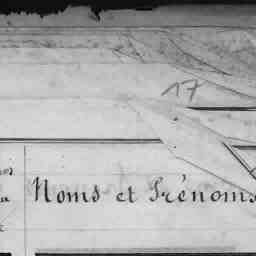 17
Noms et Prénoms